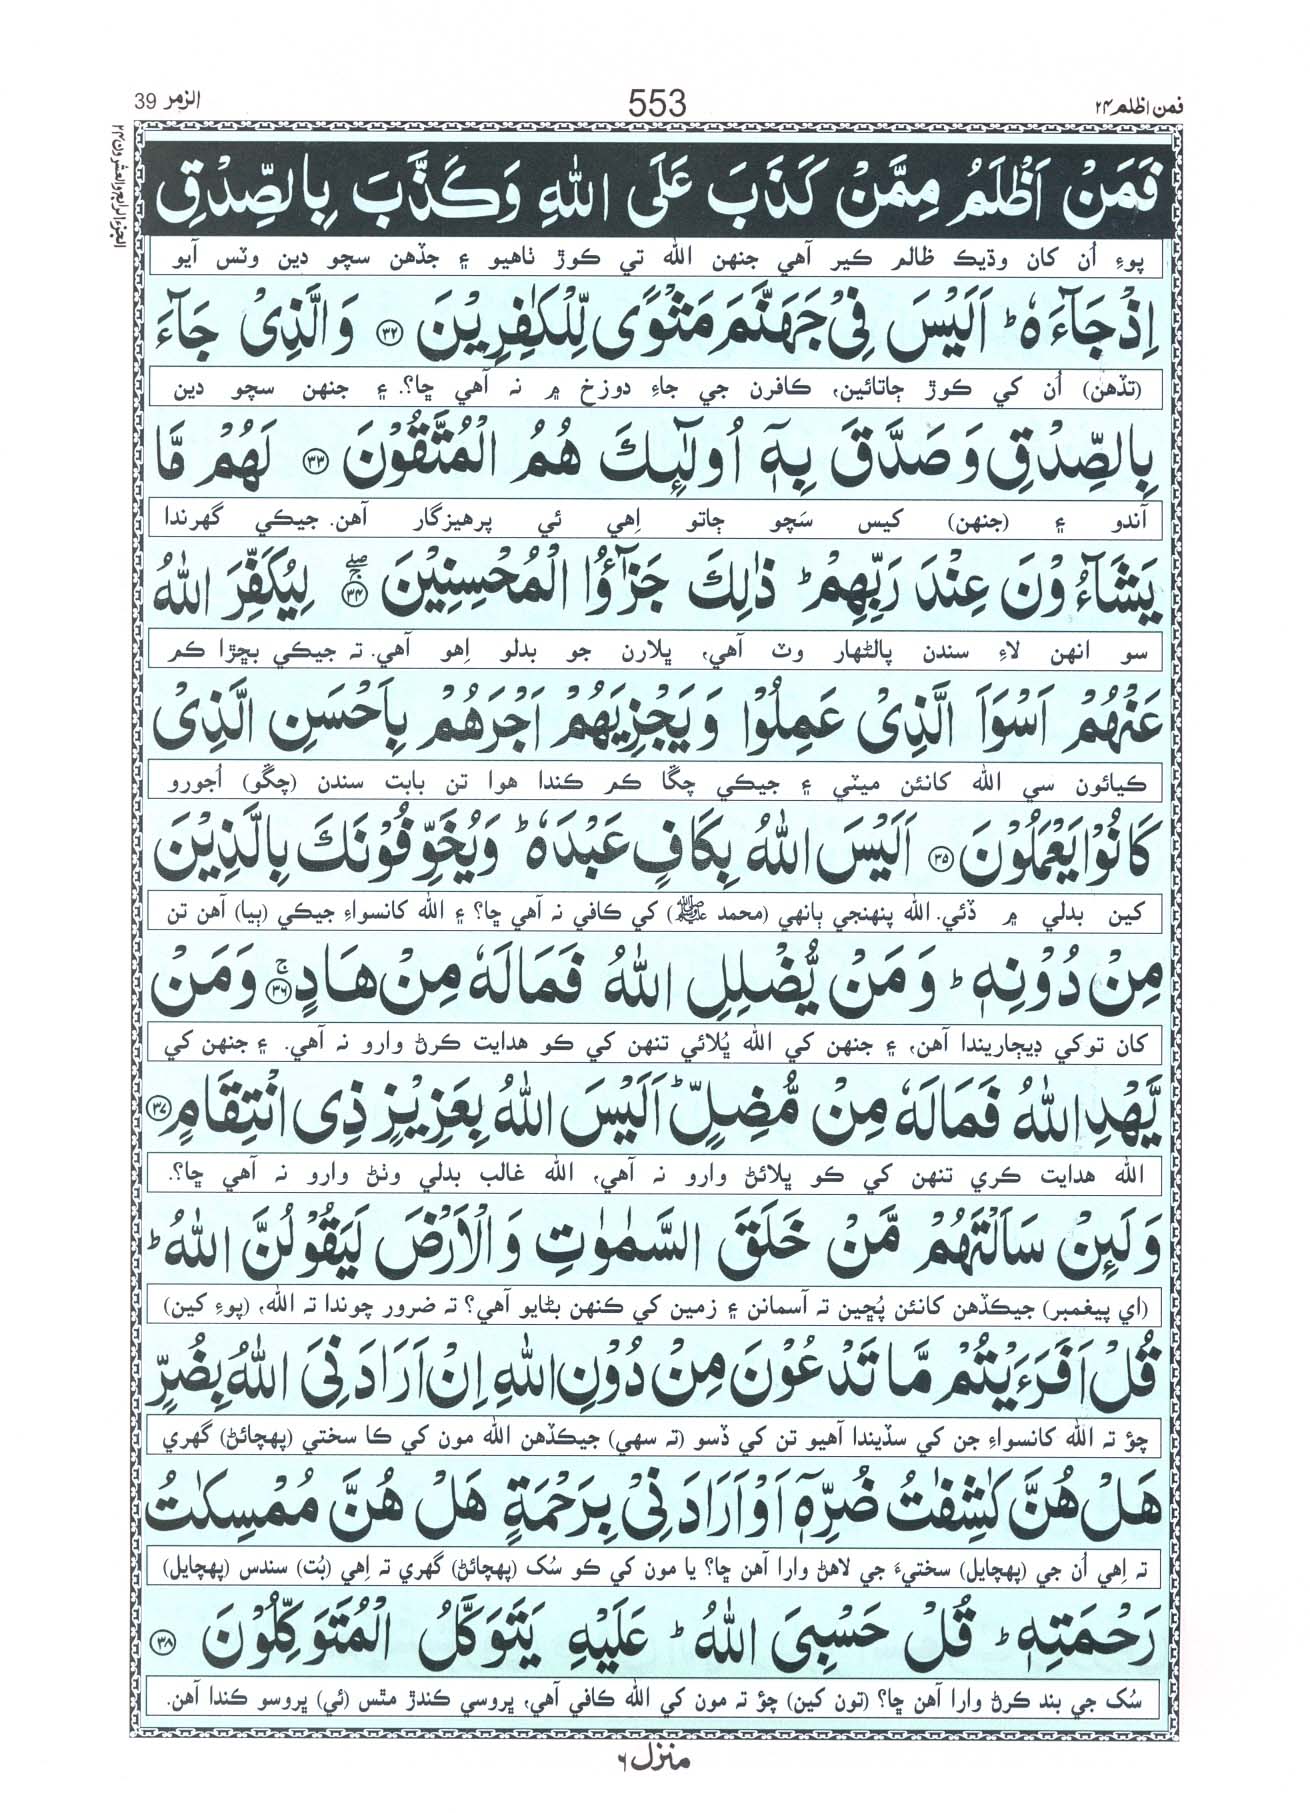 فمن اظلم ۲۴
553
الزمر 39
الجزء الرابع والعشرون ۲۴
فَمَنْ اَظْلَمُ مِمَّنْ كَذَبَ عَلَى اللّٰهِ وَكَذَّبَ بِالصِّدْقِ
پوءِ اُن کان وڌيڪ ظالم ڪير آهي جنهن الله تي ڪوڙ ٺاهيو ۽ جڏهن سچو دين وٽس آيو
اِذْ جَآءَهٗ ؕ اَلَيْسَ فِيْ جَهَنَّمَ مَثْوًى لِّلْكٰفِرِيْنَ ۝۳۲ وَالَّذِيْ جَآءَ
(تڏهن) اُن کي ڪوڙ ڄاتائين، ڪافرن جي جاءِ دوزخ ۾ نہ آهي ڇا؟. ۽ جنهن سچو دين
بِالصِّدْقِ وَصَدَّقَ بِهٖٓ اُولٰٓئِكَ هُمُ الْمُتَّقُوْنَ ۝۳۳ لَهُمْ مَّا
آندو ۽ (جنهن) کيس سَچو ڄاتو اِهي ئي پرهيزگار آهن. جيڪي گهرندا
يَشَآءُوْنَ عِنْدَ رَبِّهِمْ ؕ ذٰلِكَ جَزٰٓؤُا الْمُحْسِنِيْنَ ۝۳۴ۚۖ لِيُكَفِّرَ اللّٰهُ
سو انهن لاءِ سندن پالڻهار وٽ آهي، ڀلارن جو بدلو اِهو آهي. تہ جيڪي بڇڙا ڪم
عَنْهُمْ اَسْوَاَ الَّذِيْ عَمِلُوْا وَيَجْزِيَهُمْ اَجْرَهُمْ بِاَحْسَنِ الَّذِيْ
ڪيائون سي الله کانئن ميٽي ۽ جيڪي چڱا ڪم ڪندا هوا تن بابت سندن (چڱو) اُجورو
كَانُوْا يَعْمَلُوْنَ ۝۳۵ اَلَيْسَ اللّٰهُ بِكَافٍ عَبْدَهٗ ؕ وَيُخَوِّفُوْنَكَ بِالَّذِيْنَ
کين بدلي ۾ ڏئي. الله پنهنجي ٻانهي (محمد ﷺ) کي ڪافي نہ آهي ڇا؟ ۽ الله کانسواءِ جيڪي (ٻيا) آهن تن
مِنْ دُوْنِهٖ ؕ وَمَنْ يُّضْلِلِ اللّٰهُ فَمَا لَهٗ مِنْ هَادٍ ۝۳۶ۚ وَمَنْ
کان توکي ڊيڄاريندا آهن، ۽ جنهن کي الله ڀُلائي تنهن کي ڪو هدايت ڪرڻ وارو نہ آهي. ۽ جنهن کي
يَّهْدِ اللّٰهُ فَمَا لَهٗ مِنْ مُّضِلٍّ ؕ اَلَيْسَ اللّٰهُ بِعَزِيْزٍ ذِى انْتِقَامٍ ۝۳۷
الله هدايت ڪري تنهن کي ڪو ڀلائڻ وارو نہ آهي، الله غالب بدلي وٺڻ وارو نہ آهي ڇا؟.
وَلَئِنْ سَاَلْتَهُمْ مَّنْ خَلَقَ السَّمٰوٰتِ وَالْاَرْضَ لَيَقُوْلُنَّ اللّٰهُ ؕ
(اي پيغمبر) جيڪڏهن کانئن پُڇين تہ آسمانن ۽ زمين کي ڪنهن بڻايو آهي؟ تہ ضرور چوندا تہ الله، (پوءِ کين)
قُلْ اَفَرَءَيْتُمْ مَّا تَدْعُوْنَ مِنْ دُوْنِ اللّٰهِ اِنْ اَرَادَنِيَ اللّٰهُ بِضُرٍّ
چؤ تہ الله کانسواءِ جن کي سڏيندا آهيو تن کي ڏسو (تہ سهي) جيڪڏهن الله مون کي ڪا سختي (پهچائڻ) گهري
هَلْ هُنَّ كٰشِفٰتُ ضُرِّهٖٓ اَوْ اَرَادَنِيْ بِرَحْمَةٍ هَلْ هُنَّ مُمْسِكٰتُ
تہ اِهي اُن جي (پهچايل) سختيءَ جي لاهڻ وارا آهن ڇا؟ يا مون کي ڪو سُک (پهچائڻ) گهري تہ اِهي (بُت) سندس (پهچايل)
رَحْمَتِهٖ ؕ قُلْ حَسْبِيَ اللّٰهُ ؕ عَلَيْهِ يَتَوَكَّلُ الْمُتَوَكِّلُوْنَ ۝۳۸
سُک جي بند ڪرڻ وارا آهن ڇا؟ (تون کين) چؤ تہ مون کي الله ڪافي آهي، ڀروسي ڪندڙ مٿس (ئي) ڀروسو ڪندا آهن.
منزل ۶